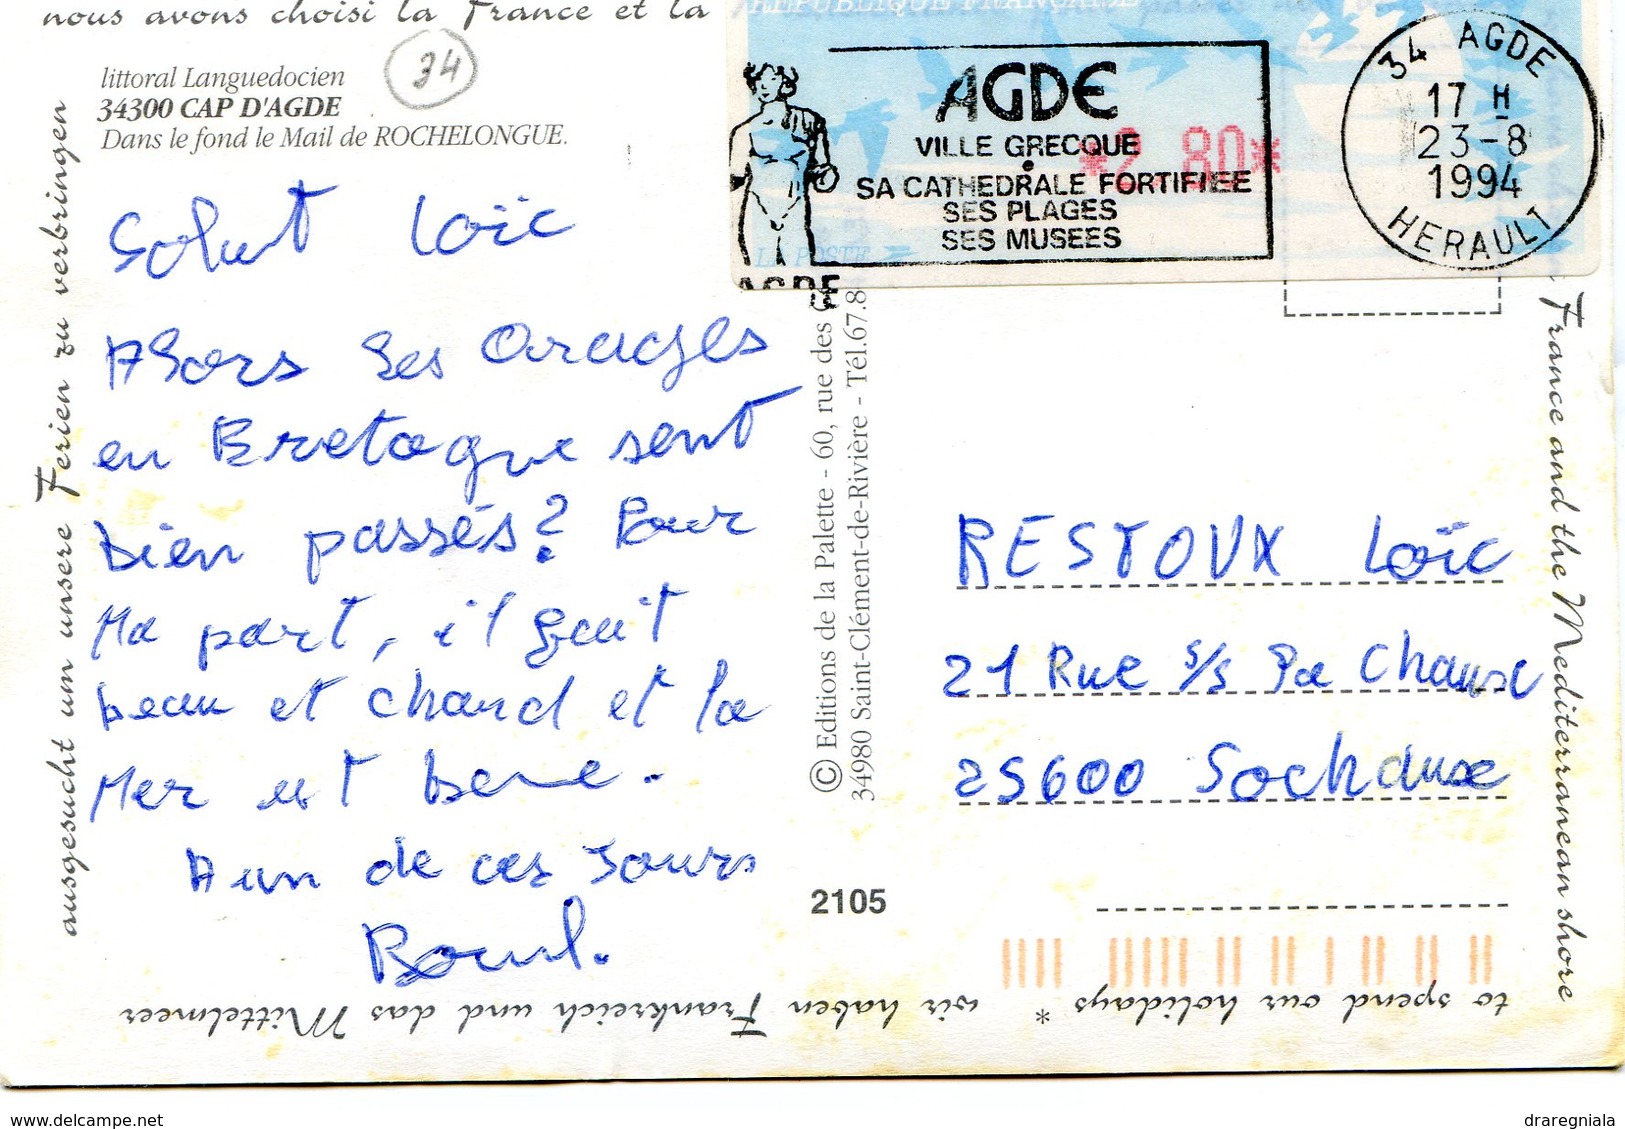 nous avons choisi la France et la
littoral Languedocien
34
34300 CAP D'AGDE
Dans le fond le Mail de ROCHELONGUE.
Salut Loïc
Alors les Orages
en Bretagne sont
bien passés ? Pour
Ma part, il fait
beau et chaud et la
Mer est bonne.
A un de ces Jours
ausgesucht um unsere Ferien zu verbringen
wir haben Frankreich und das Mittelmeer
to spend our holidays *
France and the Mediterranean shore
REPUBLIQUE FRANÇAISE
AGDE
VILLE GRECQUE
*2,80*
SA CATHEDRALE FORTIFIEE
SES PLAGES
SES MUSEES
LA POSTE
AGDE
34 AGDE
17 H
23-8
1994
HERAULT
© Editions de la Palette - 60, rue des
34980 Saint-Clément-de-Rivière - Tél.67.8
RESTOUX Loïc
21 Rue s/s la Chaux
25600 Sochaux
2105
delcampe.net
draregniala